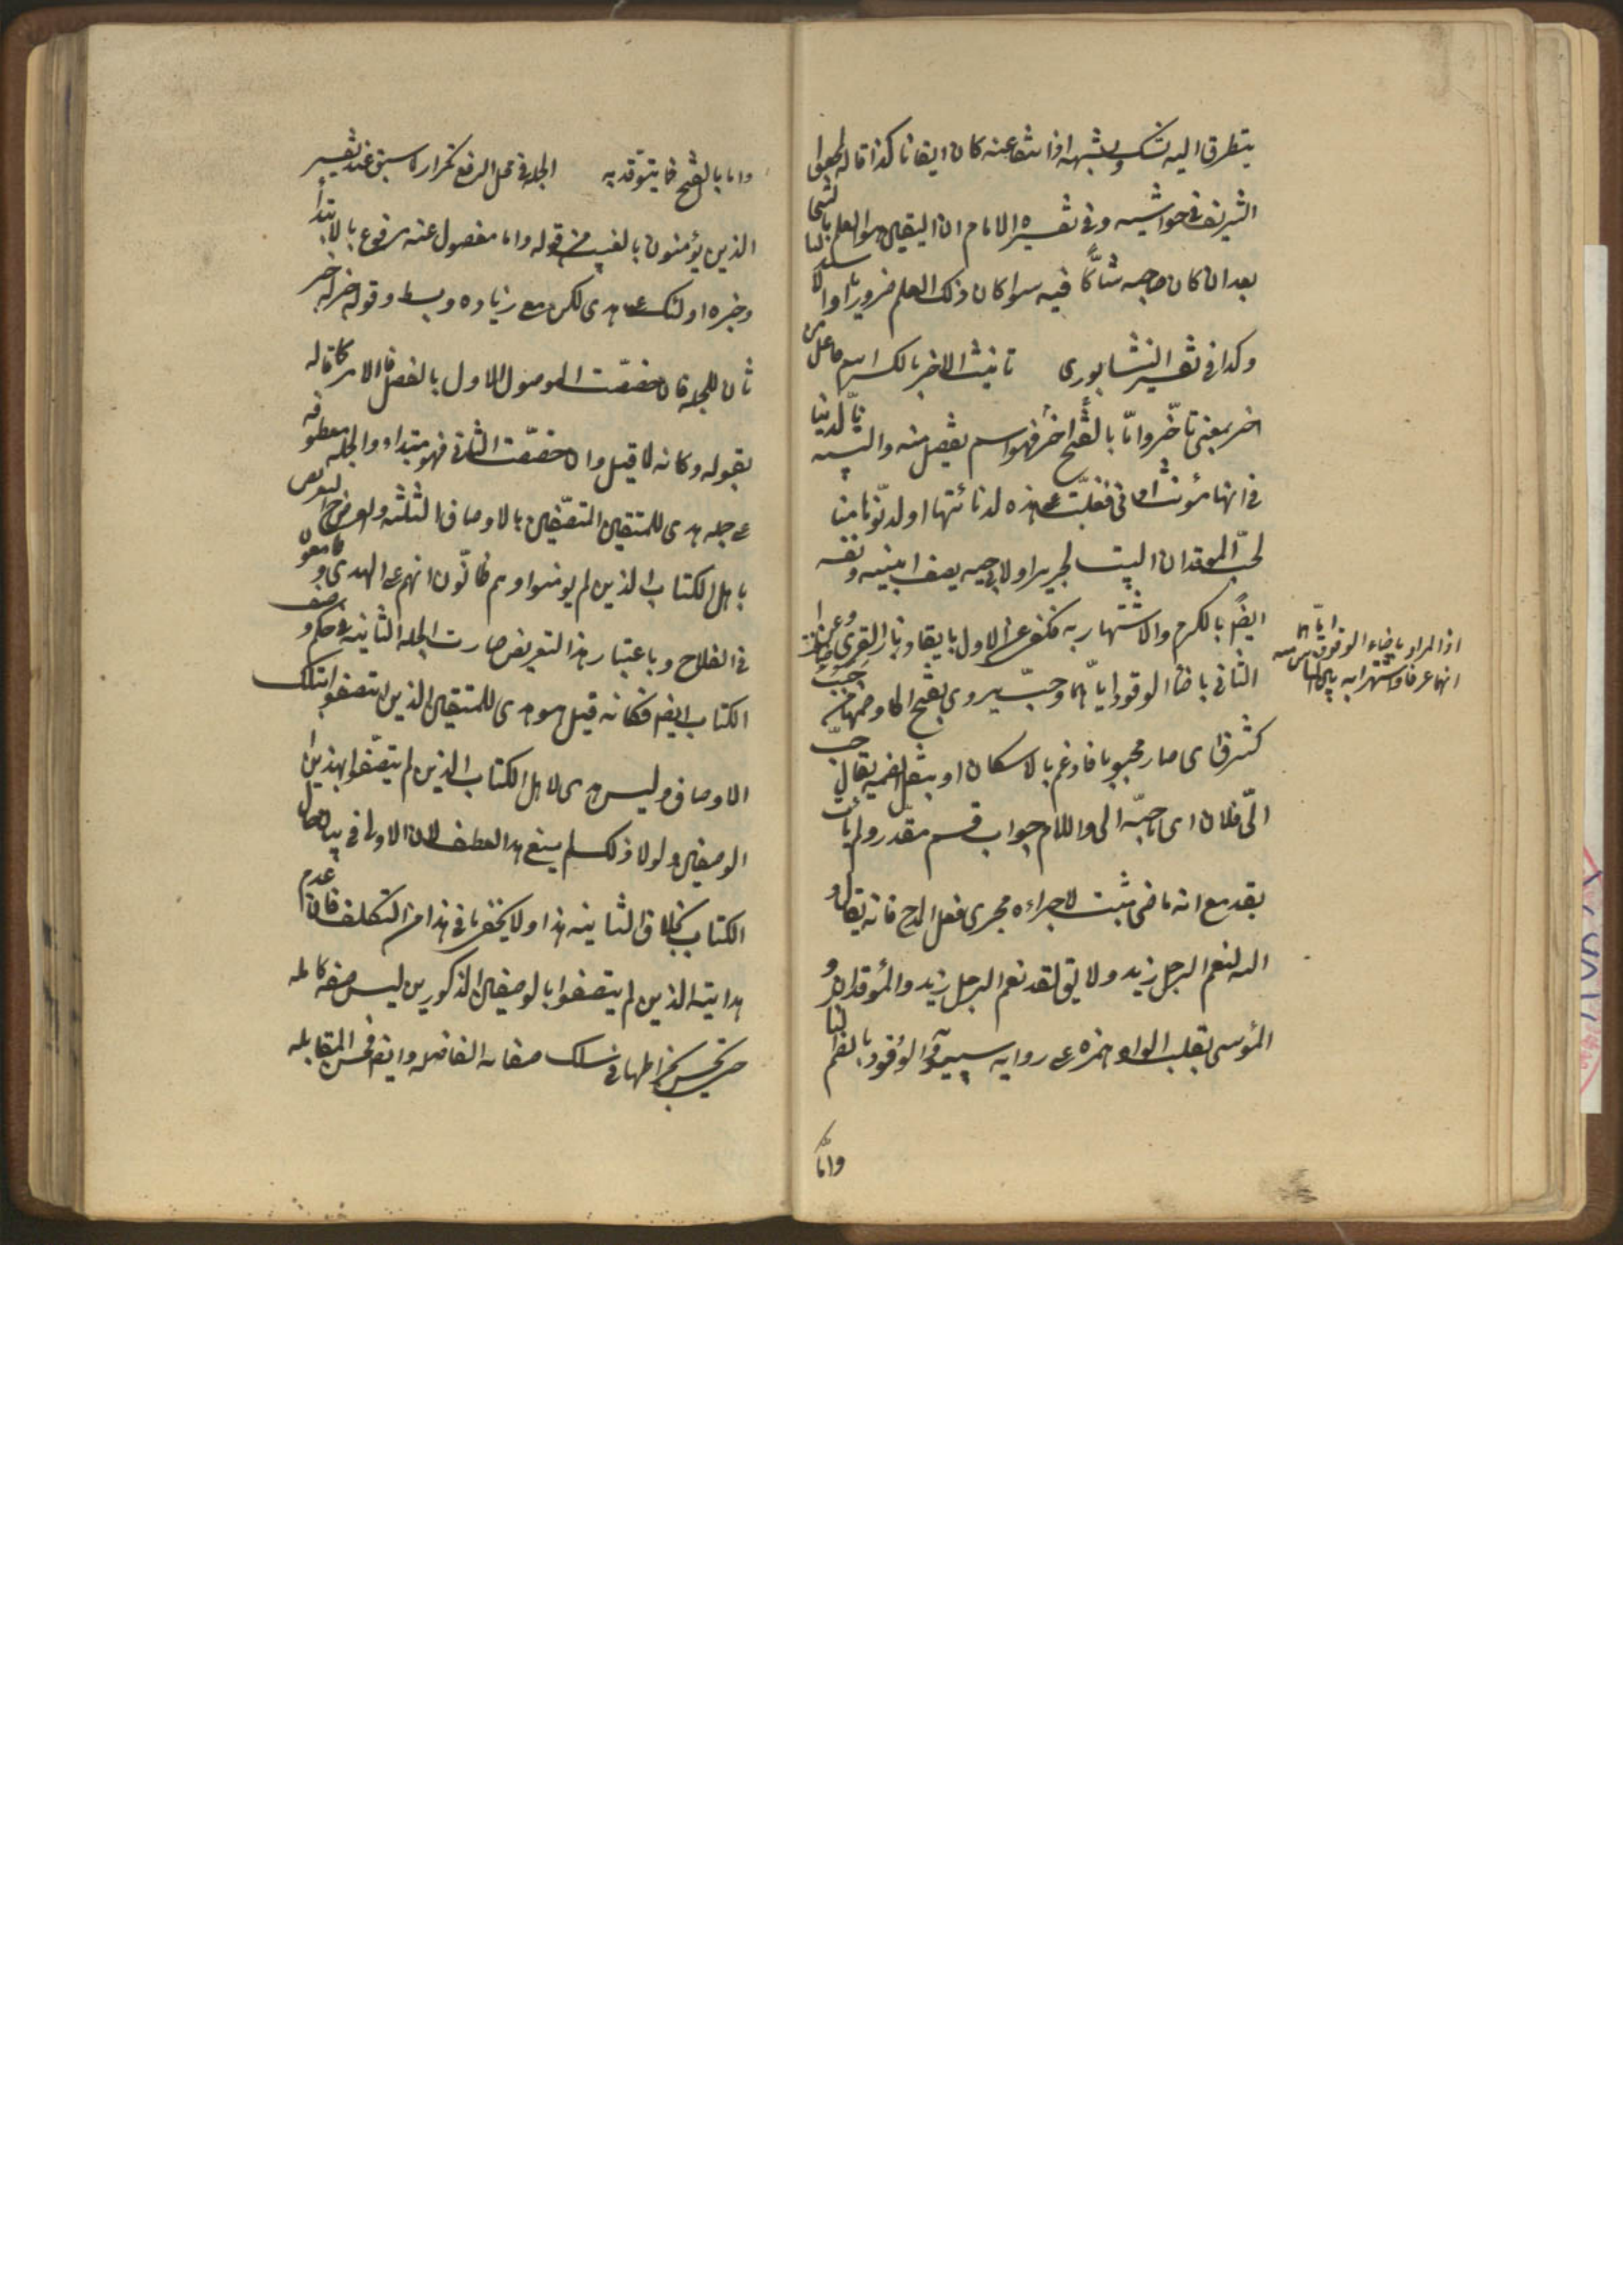 يتطرق اليه شك وشبهه اذا انتفا عنه كان ايقانا كذا قاله
الشريف في حواشيه وفي تفسير الامام ان اليقين هو العلم بالشي
بعد ان كان صاحبه شاكّا فيه سوا كان ذلك العلم ضروريا او
وكذا في تفسير النيشابوري تانيث الاخر بالكسر اسم فاعل من
اخر بمعنى تاخّر وامّا بالفتح اخر فهو اسم تفضيل منه
في انها مؤنث ادنى فغلّبت على هذه لدنائتها او لدنوّها منا
لحبّ المؤقدان البيت لجرير او لابي حيه يصف ابنيه
ايضا بالكرم والاشتهار به فكنى عن الاول بايقاد نار القرى وعن
الثاني باضاءة الوقود ايّاهما وحبّ يروى بفتح الحا وضمها من حبب
كشرف اى صار محبوبا فادغم بالاسكان او بنقل الضمه يقال حبّ
الىّ فلان اى ما احبّه الى واللام جواب قسم مقدر ولم يات
بقد مع انه ماضى مثبت لاجراءه مجرى فعل المدح فانه يقال و
الله لنعم الرجل زيد ولا يق لقد نعم الرجل زيد والمؤقدان و
المؤسى بقلب الواو همزه على روايه سيبويه والوقود بالضم
وامّا
اذ المراد باضاءة الوقود ايّاهما
انهما عرفا واشتهرا به بين الناس منه
واما بالفتح فما يتوقد به الجمله في محل الرفع تكرار لما سبق عند تفسير
الذين يؤمنون بالغيب من قوله واما مفصول عنه مرفوع بالابتدأ
وخبره اولئك على هدى لكن مع زياده وبسط وقوله خبر
ثان للجمله فان حققت الموصول الاول بالفصل فالامر كما قاله
بقوله وكانه لما قيل وان حققت الثاني فهو مبتداء والجمله معطوفه
على جمله هدى للمتقين المتصفين بالاوصاف الثلثه والغرض التعريض
باهل الكتاب الذين لم يومنوا وهم ظانّون انهم على الهدى و طامعون
في الفلاح وباعتبار هذا التعريض صارت الجمله الثانيه في حكم وصف
الكتاب ايضا فكانه قيل هو هدى للمتقين الذين اتصفوا بتلك
الاوصاف وليس هدى لاهل الكتاب الذين لم يتصفوا بهذين
الوصفين ولولا ذلك لم ينفع هذا العطف لان الاولى في بيان حال
الكتاب بخلاف الثانيه هذا ولا يخفى ما في هذا من التكلف فان عدم
هدايته الذين لم يتصفوا بالوصفين المذكورين ليس صفه كامله
حتى يحسن انخراطها في سلك صفاته الفاضله وايضا فحسن المقابله